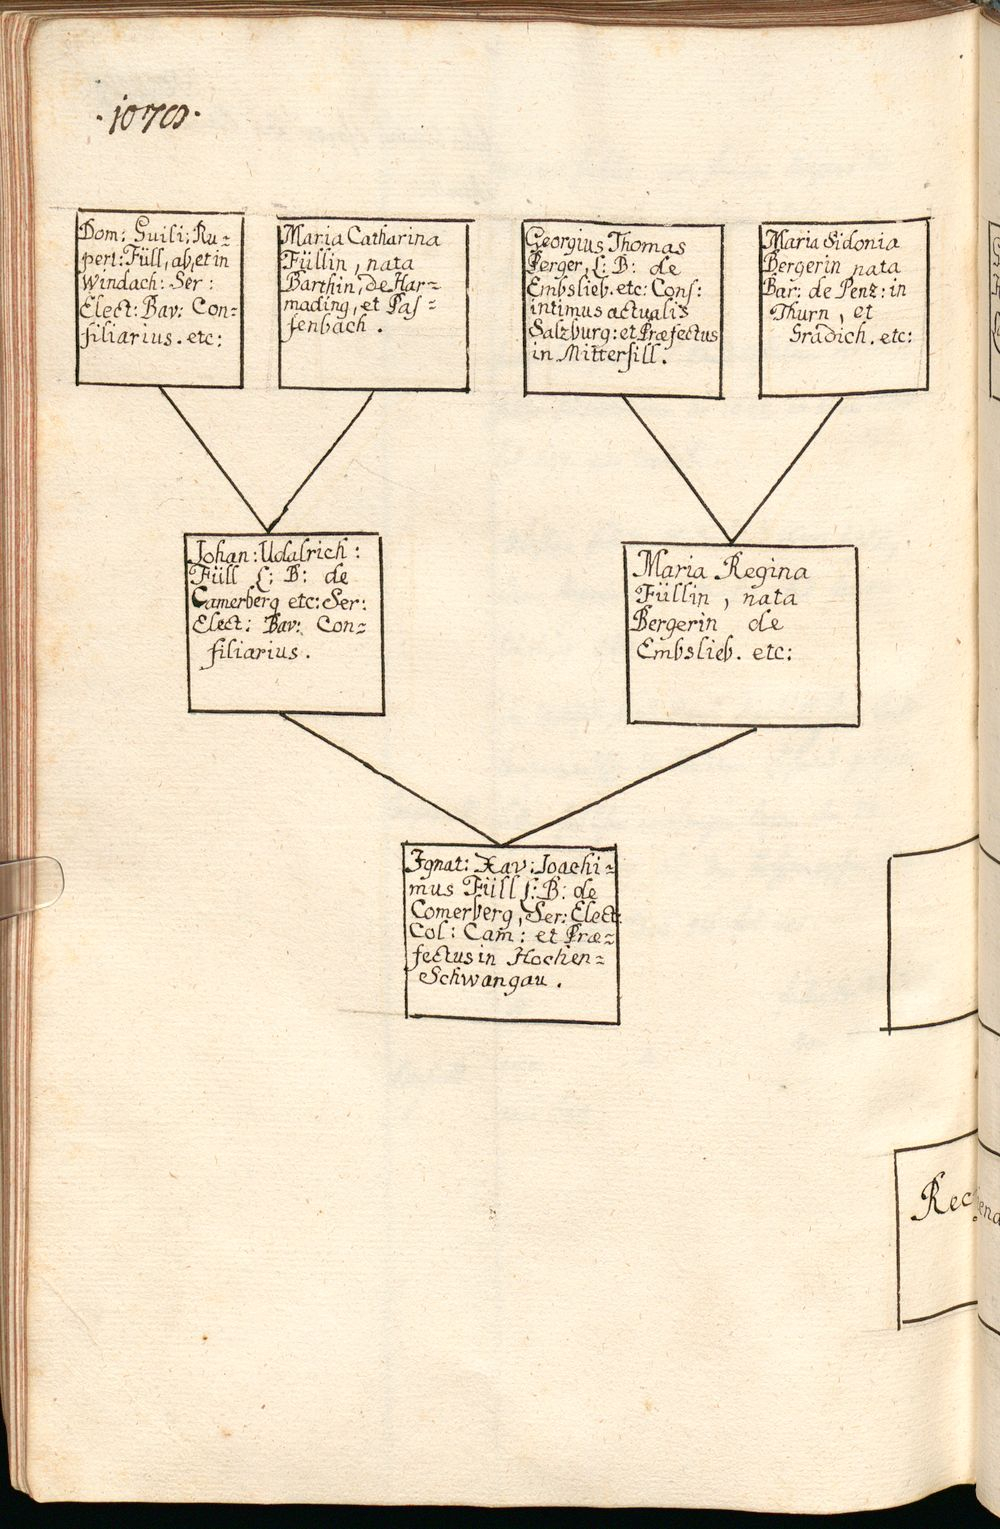 ·1070·
Dom: Guili: Ru=
pert: Füll, ab, et in
Windach: Ser:
Elect: Bav: Con=
siliarius. etc:
Maria Catharina
Füllin, nata
Barthin, de Har=
mading, et Pas=
senbach.
Georgius Thomas
Perger, L: B: de
Embslieb. etc: Cons:
intimus actualis
Salzburg: et Præfectus
in Mittersill.
Maria Sidonia
Bergerin nata
Bar: de Penz: in
Thurn, et
Gradich. etc:
Johan: Udalrich:
Füll L: B: de
Camerberg etc: Ser:
Elect: Bav: Con=
siliarius.
Maria Regina
Füllin, nata
Bergerin de
Embslieb. etc:
Ignat: Xav: Joachi=
mus Füll L: B: de
Comerberg, Ser: Elect:
Col: Cam: et Præ=
fectus in Hochen=
Schwangau.